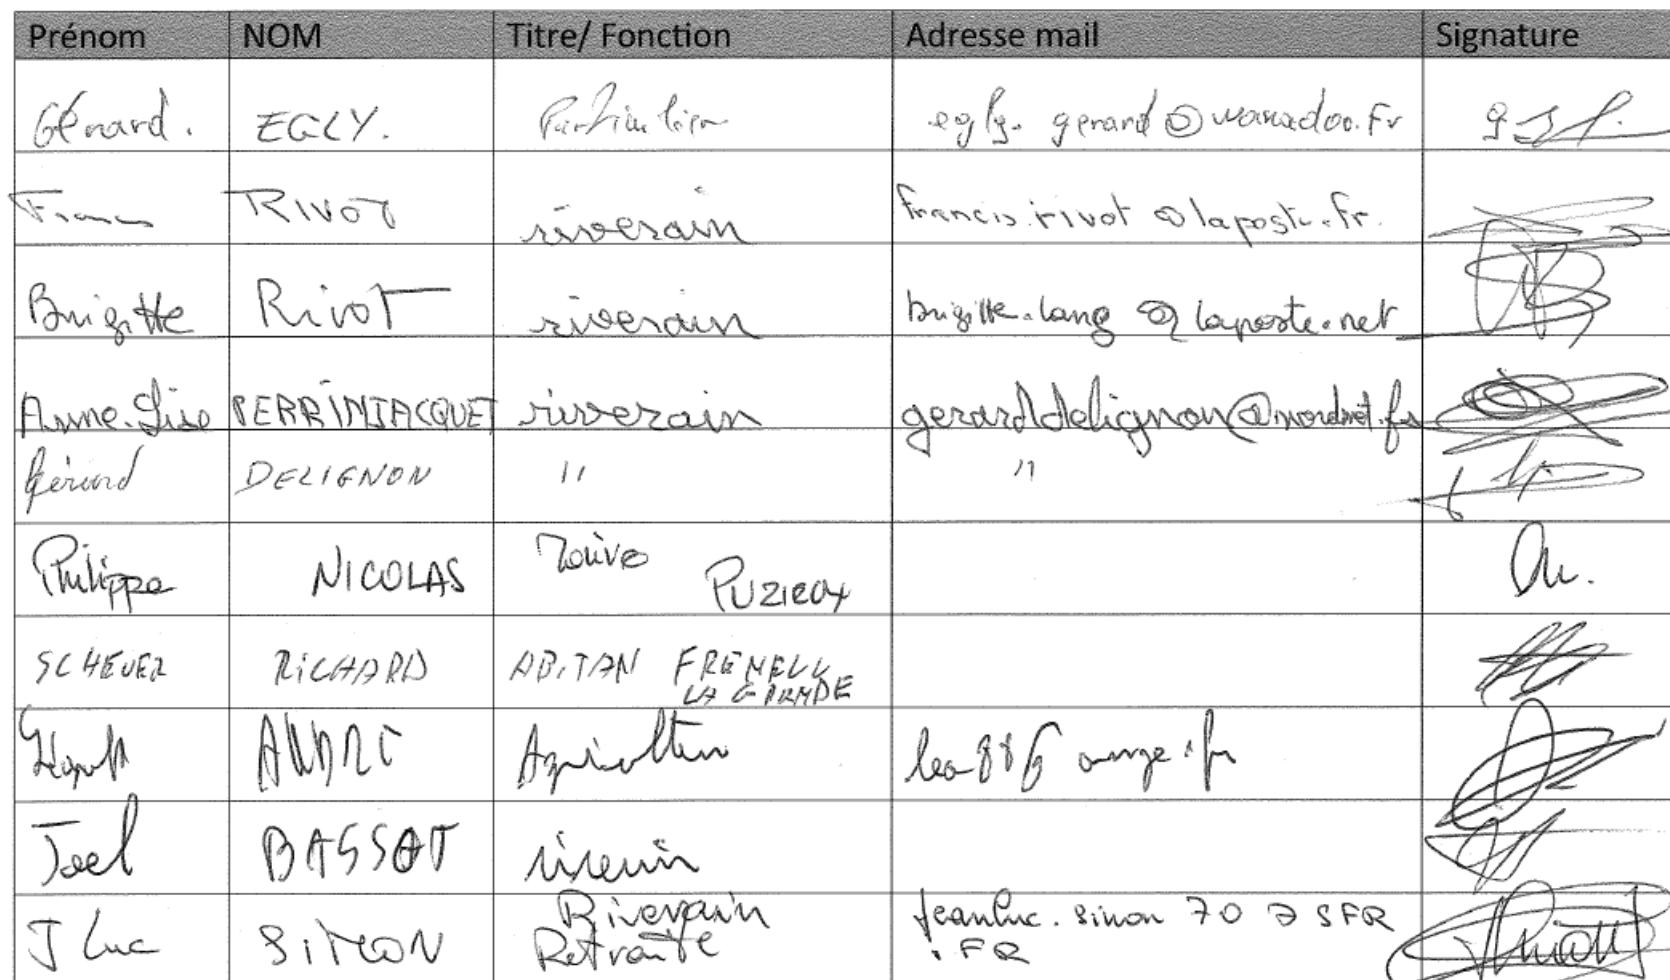 Prénom NOM Titre/ Fonction Adresse mail Signature
Gérard. EGLY. Particulier egly.gerard@wanadoo.fr
Francis RIVOT riverain francis.rivot@laposte.fr.
Brigitte RivoT riverain brigitte.lang@laposte.net
Anne.Lise PERRINJACQUET riverain gerarddelignon@nordnet.fr
Gérard DELIGNON " "
Philippe NICOLAS Maire Puzieux
SCHEUER RICHARD ABITAN FRENELLE
LA GRANDE
ANDRE Agriculteur orange.fr
Joel BASSOT riverain
J Luc SIMON Riverain jeanluc.simon 70 @ SFR
Retraite .FR